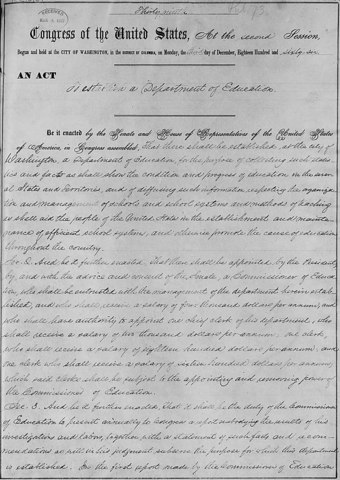 Thirty-ninth
Congress of the United States, At the second Session,
Begun and held at the CITY OF WASHINGTON, in the DISTRICT OF COLUMBIA, on Monday, the third day of December, Eighteen Hundred and Sixty-six
AN ACT
To establish a Department of Education.
Be it enacted by the Senate and House of Representatives of the United States
of America, in Congress assembled, That there shall be established, at the city of
Washington, a Department of Education, for the purpose of collecting such statis-
tics and facts as shall show the condition and progress of education in the sever-
al States and Territories, and of diffusing such information respecting the organiza-
tion and management of schools and school systems, and methods of teaching
as shall aid the people of the United States in the establishment and mainte-
nance of efficient school systems, and otherwise promote the cause of education
throughout the country.
Sec. 2. And be it further enacted, That there shall be appointed by the President,
by and with the advice and consent of the Senate, a Commissioner of Educa-
tion, who shall be intrusted with the management of the department herein estab-
lished, and who shall receive a salary of four thousand dollars per annum, and
who shall have authority to appoint one chief clerk of his department, who
shall receive a salary of two thousand dollars per annum, one clerk
who shall receive a salary of eighteen hundred dollars per annum, and
one clerk who shall receive a salary of sixteen hundred dollars per annum,
which said clerks shall be subject to the appointing and removing power of
the Commissioner of Education.
Sec. 3. And be it further enacted, That it shall be the duty of the Commissioner
of Education to present annually to Congress a report embodying the results of his
investigations and labors, together with a statement of such facts and recom-
mendations as will in his judgment subserve the purpose for which this department
is established. In the first report made by the Commissioner of Education